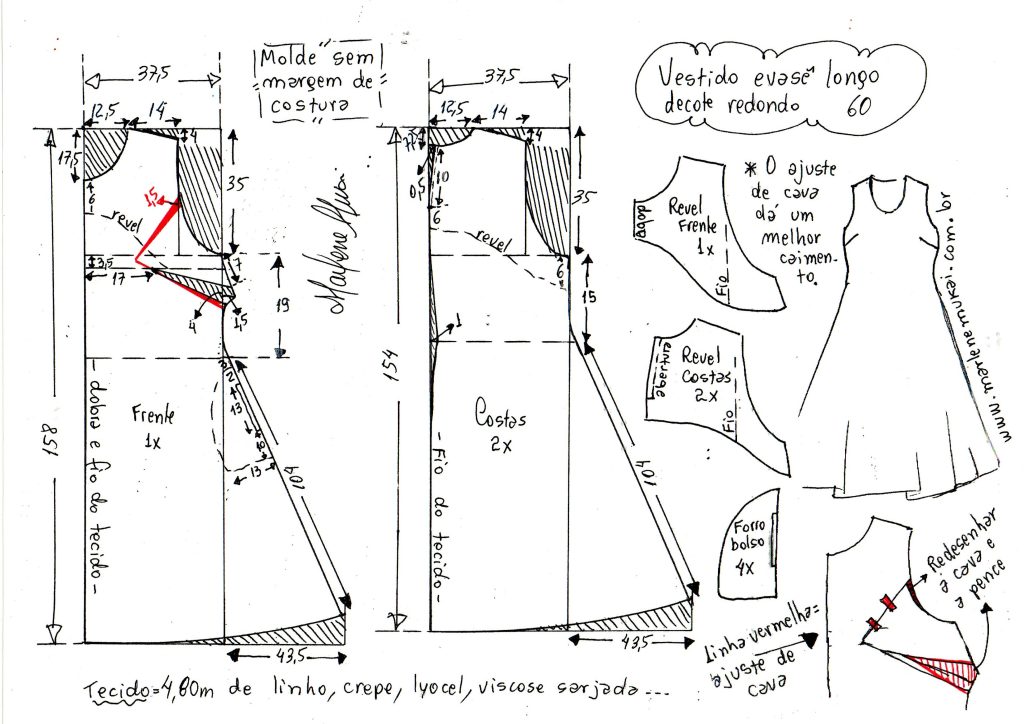 "Molde" sem
margem de
costura
Vestido evasê longo
decote redondo 60
37,5
12,5
14
4
17,5
6
1,5
35
revel
3,5
17
7
4
1,5
19
3
2
13
6
13
104
158
- dobra e fio do tecido -
Frente
1x
43,5
Marlene Mukai
37,5
12,5
14
4
0,5
10
6
35
revel
6
15
1
154
Costas
2x
- Fio do tecido -
104
43,5
dobra
Revel
Frente
1x
Fio
* O ajuste
de cava
dá um
melhor
caimen-
to.
abertura
Revel
Costas
2x
Fio
www.marlenemukai.com.br
Forro
bolso
4x
Redesenhar
a cava e
a pence
Linha vermelha=
ajuste de
cava
Tecido=4,80m de linho, crepe, lyocel, viscose sarjada...